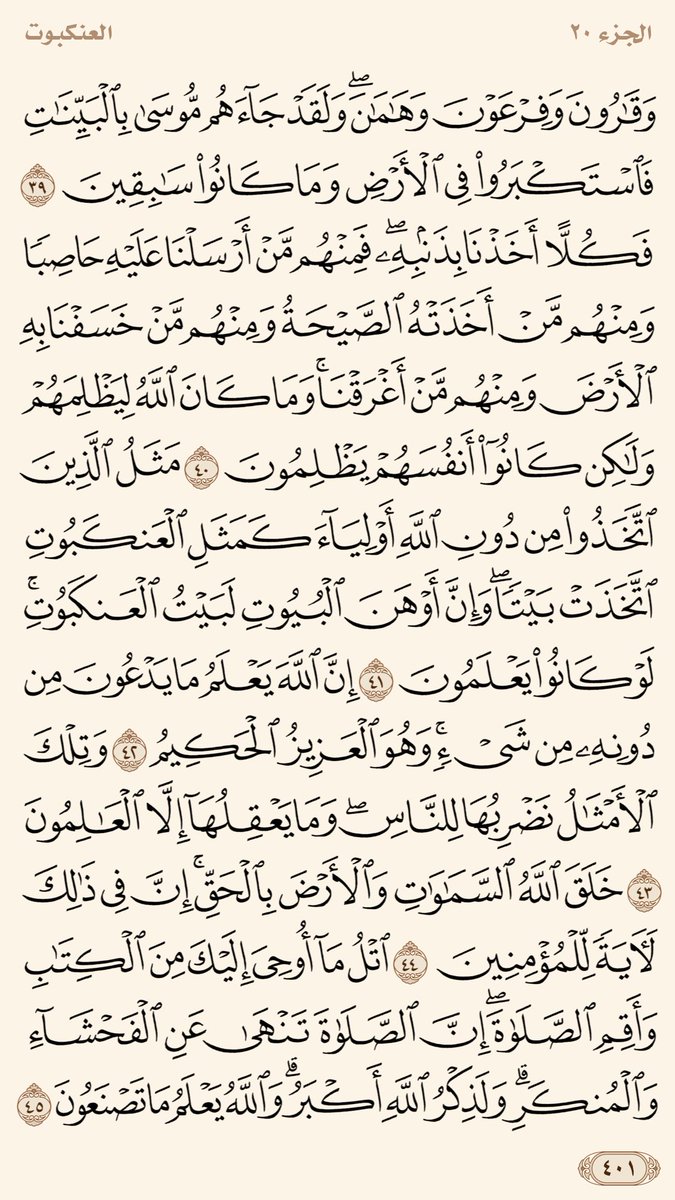 الجزء ٢٠ العنكبوت
وَقَٰرُونَ وَفِرْعَوْنَ وَهَٰمَٰنَۖ وَلَقَدْ جَآءَهُم مُّوسَىٰ بِٱلْبَيِّنَٰتِ
فَٱسْتَكْبَرُوا۟ فِى ٱلْأَرْضِ وَمَا كَانُوا۟ سَٰبِقِينَ ٣٩
فَكُلًّا أَخَذْنَا بِذَنۢبِهِۦۖ فَمِنْهُم مَّنْ أَرْسَلْنَا عَلَيْهِ حَاصِبًا
وَمِنْهُم مَّنْ أَخَذَتْهُ ٱلصَّيْحَةُ وَمِنْهُم مَّنْ خَسَفْنَا بِهِ
ٱلْأَرْضَ وَمِنْهُم مَّنْ أَغْرَقْنَاۚ وَمَا كَانَ ٱللَّهُ لِيَظْلِمَهُمْ
وَلَٰكِن كَانُوٓا۟ أَنفُسَهُمْ يَظْلِمُونَ ٤٠ مَثَلُ ٱلَّذِينَ
ٱتَّخَذُوا۟ مِن دُونِ ٱللَّهِ أَوْلِيَآءَ كَمَثَلِ ٱلْعَنكَبُوتِ
ٱتَّخَذَتْ بَيْتًاۖ وَإِنَّ أَوْهَنَ ٱلْبُيُوتِ لَبَيْتُ ٱلْعَنكَبُوتِۚ
لَوْ كَانُوا۟ يَعْلَمُونَ ٤١ إِنَّ ٱللَّهَ يَعْلَمُ مَا يَدْعُونَ مِن
دُونِهِۦ مِن شَىْءٍۚ وَهُوَ ٱلْعَزِيزُ ٱلْحَكِيمُ ٤٢ وَتِلْكَ
ٱلْأَمْثَٰلُ نَضْرِبُهَا لِلنَّاسِۖ وَمَا يَعْقِلُهَآ إِلَّا ٱلْعَٰلِمُونَ
٤٣ خَلَقَ ٱللَّهُ ٱلسَّمَٰوَٰتِ وَٱلْأَرْضَ بِٱلْحَقِّۚ إِنَّ فِى ذَٰلِكَ
لَءَايَةً لِّلْمُؤْمِنِينَ ٤٤ ٱتْلُ مَآ أُوحِىَ إِلَيْكَ مِنَ ٱلْكِتَٰبِ
وَأَقِمِ ٱلصَّلَوٰةَۖ إِنَّ ٱلصَّلَوٰةَ تَنْهَىٰ عَنِ ٱلْفَحْشَآءِ
وَٱلْمُنكَرِۗ وَلَذِكْرُ ٱللَّهِ أَكْبَرُۗ وَٱللَّهُ يَعْلَمُ مَا تَصْنَعُونَ ٤٥
٤٠١